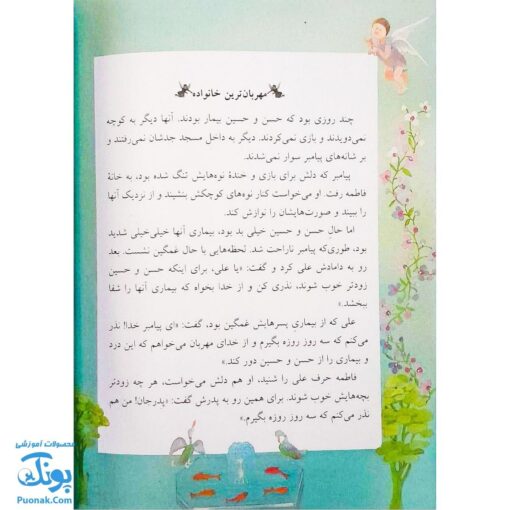 مهربان‌ترین خانواده
چند روزی بود که حسن و حسین بیمار بودند. آنها دیگر به کوچه
نمی‌دویدند و بازی نمی‌کردند. دیگر به داخل مسجد جدشان نمی‌رفتند و
بر شانه‌های پیامبر سوار نمی‌شدند.
پیامبر که دلش برای بازی و خندهٔ نوه‌هایش تنگ شده بود، به خانهٔ
فاطمه رفت. او می‌خواست کنار نوه‌های کوچکش بنشیند و از نزدیک آنها
را ببیند و صورت‌هایشان را نوازش کند.
اما حال حسن و حسین خیلی بد بود، بیماری آنها خیلی‌خیلی شدید
بود، طوری‌که پیامبر ناراحت شد. لحظه‌هایی با حال غمگین نشست. بعد
رو به دامادش علی کرد و گفت: «یا علی، برای اینکه حسن و حسین
زودتر خوب شوند، نذری کن و از خدا بخواه که بیماری آنها را شفا
ببخشد.»
علی که از بیماری پسرهایش غمگین بود، گفت: «ای پیامبر خدا! نذر
می‌کنم که سه روز روزه بگیرم و از خدای مهربان می‌خواهم که این درد
و بیماری را از حسن و حسین دور کند.»
فاطمه حرف علی را شنید، او هم دلش می‌خواست، هر چه زودتر
بچه‌هایش خوب شوند. برای همین رو به پدرش گفت: «پدرجان! من هم
نذر می‌کنم که سه روز روزه بگیرم.»
محصولات آموزشی
پونک
Puonak.Com